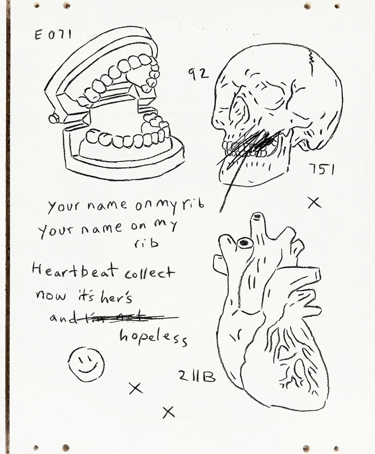 E071
92
751
your name on my rib
your name on my
rib
Heartbeat collect
now it's her's
and I'm not
hopeless
211B
x
x
x